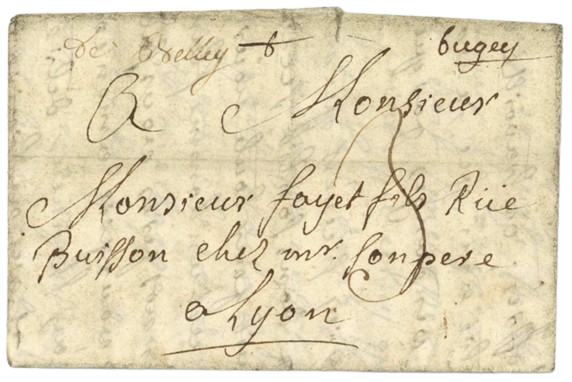 De Belley + bugey
A Monsieur
Monsieur fayet fils Rüe
Buisson chez mr. sonpere
a Lyon
3